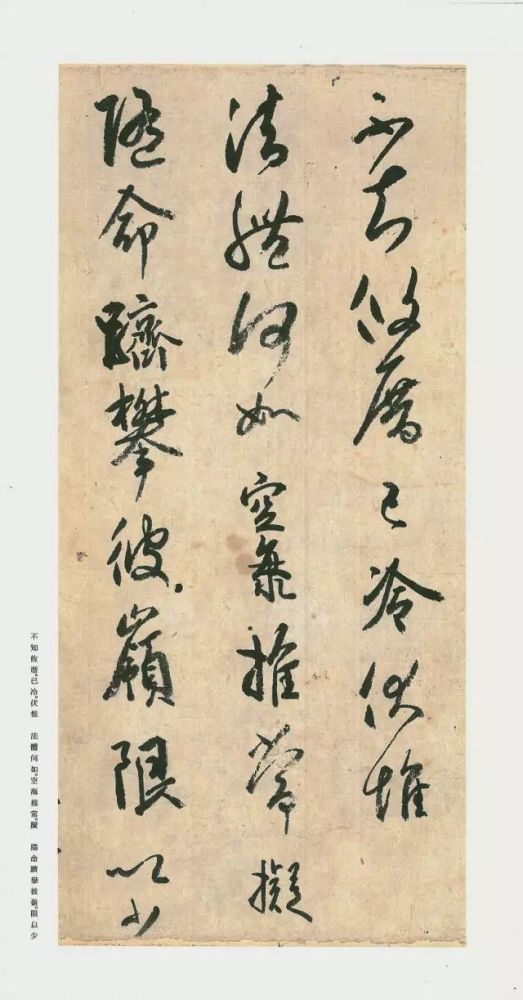 不知攸厝已冷伏惟
法體何如空海推常擬
隨命躋攀彼嶺限以少
不知攸厝。已冷。伏惟　法體何如。空海推常。擬　隨命躋攀彼嶺。限以少